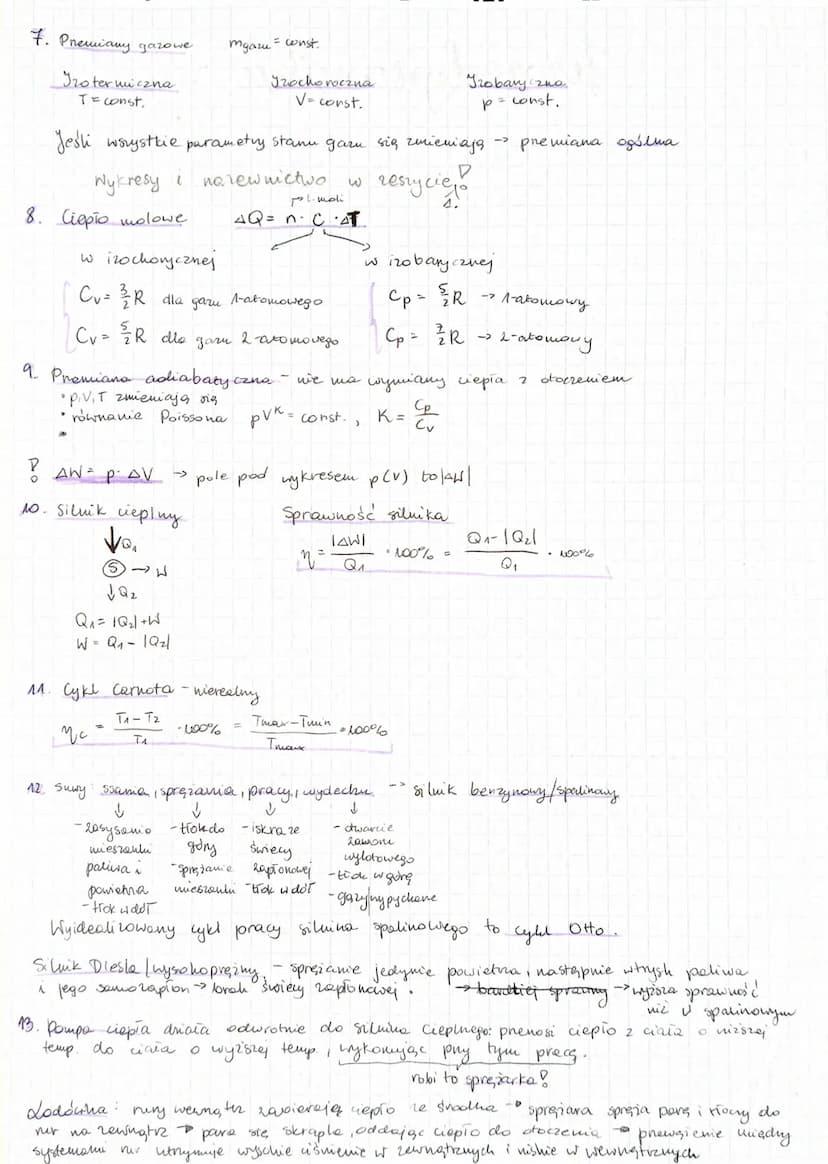 7. Przemiany gazowe mgazu = const.
Izotermiczna Izochoryczna Izobaryczna
T = const. V = const. p = const.
Jeśli wszystkie parametry stanu gazu się zmieniają → przemiana ogólna
Wykresy i nazewnictwo w zeszycie!
8. Ciepło molowe ΔQ = n · C · ΔT
w izochorycznej w izobarycznej
Cv = 3/2 R dla gazu 1-atomowego Cp = 5/2 R → 1-atomowy
Cv = 5/2 R dla gazu 2-atomowego Cp = 7/2 R → 2-atomowy
9. Przemiana adiabatyczna - nie ma wymiany ciepła z otoczeniem
• p,V,T zmieniają się
• równanie Poissona pV^K = const., K = Cp/Cv
! ΔW = p · ΔV → pole pod wykresem p(V) to |ΔW|
10. Silnik cieplny Sprawność silnika
↓Q1 η = |ΔW|/Q1 · 100% = Q1-|Q2|/Q1 · 100%
S → W
↓Q2
Q1 = |Q2| + W
W = Q1 - |Q2|
11. Cykl Carnota - nierealny
ηc = T1-T2/T1 · 100% = Tmax-Tmin/Tmax · 100%
12. Suwy: ssania, sprężania, pracy, wydechu → silnik benzynowy/spalinowy
- zasysanie mieszanki paliwa i powietrza
- tłok w dół
- tłok do góry
- sprężanie mieszanki
- iskra ze świecy zapłonowej
- tłok w dół
- otwarcie zaworu wylotowego
- tłok w górę
- gazy wypychane
Wyidealizowany cykl pracy silnika spalinowego to cykl Otto.
Silnik Diesla/wysokoprężny - sprężanie jedynie powietrza, następnie wtrysk paliwa
i jego samozapłon → brak świecy zapłonowej. → bardziej sprawny → wyższa sprawność
niż w spalinowym
13. Pompa ciepła działa odwrotnie do silnika cieplnego: przenosi ciepło z ciała o niższej
temp. do ciała o wyższej temp., wykonując przy tym pracę.
robi to sprężarka!
Lodówka: rury wewnątrz zabierają ciepło ze środka → sprężara spręża parę i tłoczy do
rur na zewnątrz → para się skrapla, oddając ciepło do otoczenia → przewężenie między
systemami rur utrzymuje wysokie ciśnienie w zewnętrznych i niskie w wewnętrznych